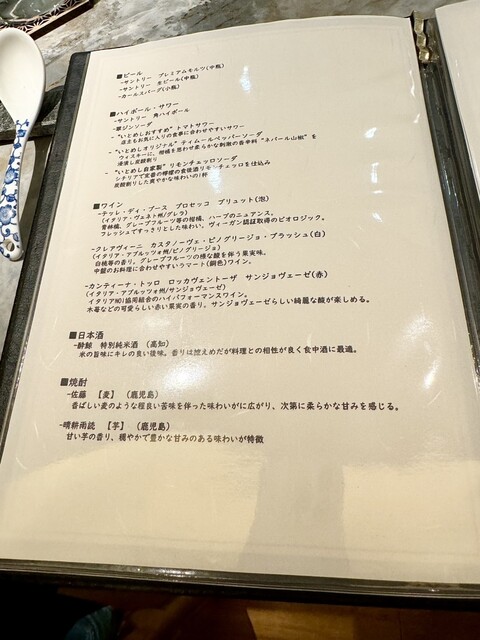 ■ビール
-サントリー　プレミアムモルツ(中瓶)
-サントリー　生ビール(中瓶)
-カールスバーグ(小瓶)
■ハイボール・サワー
-サントリー　角ハイボール
-翠ジンソーダ
-"いとめしおすすめ"トマトサワー
店主もお気に入りの食事に合わせやすいサワー
-"いとめしオリジナル"ティムールペッパーソーダ
ウィスキーに、柑橘を思わせ柔らかな刺激の香辛料"ネパール山椒"を
浸漬し炭酸割り
-"いとめし自家製"リモンチェッロソーダ
シチリアで定番の檸檬の食後酒リモンチェッロを仕込み
炭酸割りした爽やかな味わいの1杯
■ワイン
-テッレ・ディ・ブース　プロセッコ　ブリュット(泡)
(イタリア・ヴェネト州/グレラ)
青林檎、グレープフルーツ等の柑橘、ハーブのニュアンス。
フレッシュですっきりとした味わい。ヴィーガン認証取得のビオロジック。
-クレアヴィーニ　カスタノーヴェ・ピノグリージョ・ブラッシュ(白)
(イタリア・アブルッツォ州/ピノグリージョ)
白桃等の香り。グレープフルーツの様な酸を伴う果実味。
中盤のお料理に合わせやすいラマート(銅色)ワイン。
-カンティーナ・トッロ　ロッカヴェントーザ　サンジョヴェーゼ(赤)
(イタリア・アブルッツォ州/サンジョヴェーゼ)
イタリアNO1協同組合のハイパフォーマンスワイン。
木苺などの可愛らしい赤い果実の香り。サンジョヴェーゼらしい綺麗な酸が楽しめる。
■日本酒
-酔鯨　特別純米酒　(高知)
米の旨味にキレの良い後味。香りは控えめだが料理との相性が良く食中酒に最適。
■焼酎
-佐藤　【麦】　(鹿児島)
香ばしい麦のような程良い苦味を伴った味わいがに広がり、次第に柔らかな甘みを感じる。
-晴耕雨読　【芋】　(鹿児島)
甘い芋の香り、穏やかで豊かな甘みのある味わいが特徴